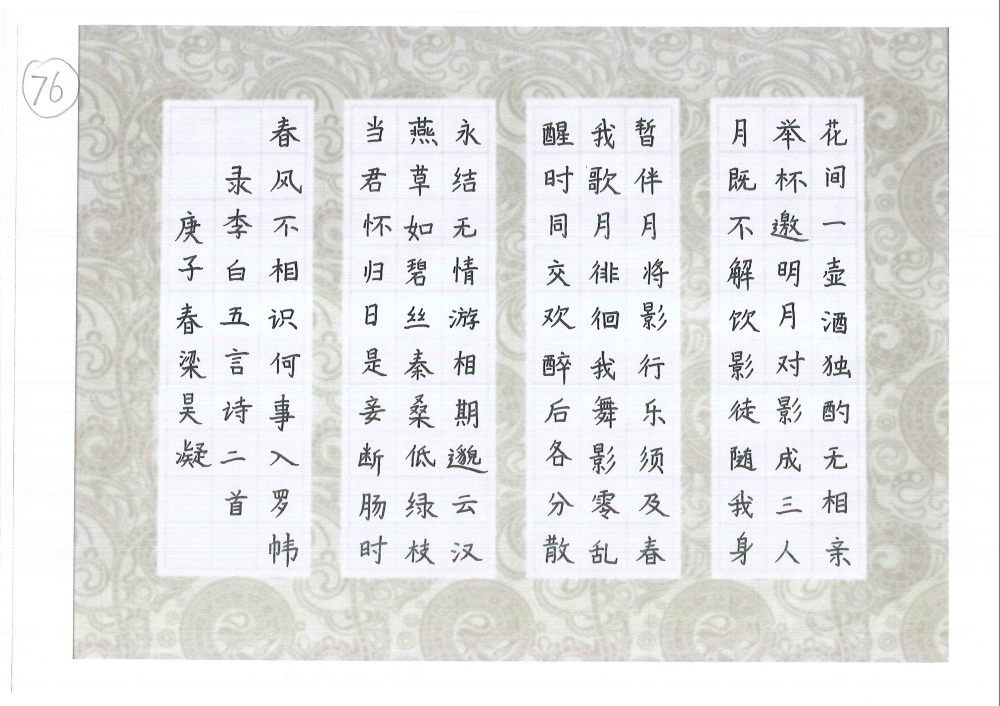 76
花间一壶酒独酌无相亲
举杯邀明月对影成三人
月既不解饮影徒随我身
暂伴月将影行乐须及春
我歌月徘徊我舞影零乱
醒时同交欢醉后各分散
永结无情游相期邈云汉
燕草如碧丝秦桑低绿枝
当君怀归日是妾断肠时
春风不相识何事入罗帏
录李白五言诗二首
庚子春梁昊凝